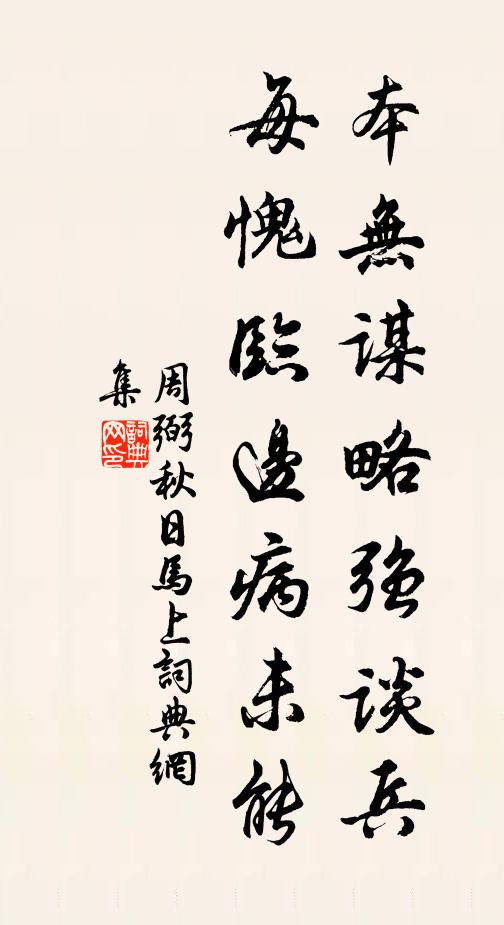 本無謀略強談兵
每愧臨邊病未能
周弼秋日馬上詞典網
集
詞典
网印